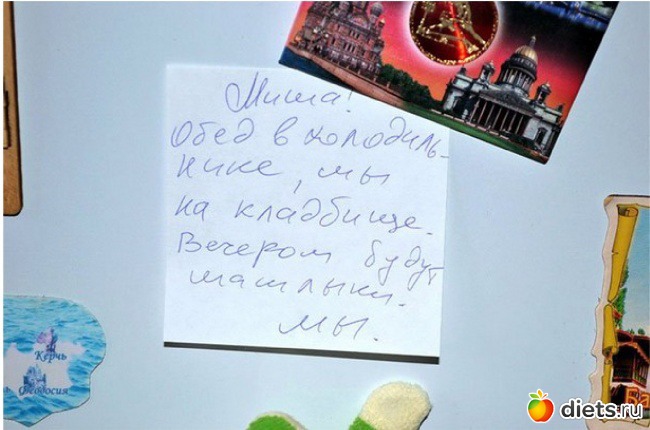 Миша!
Обед в холодиль-
нике, мы
на кладбище.
Вечером будут
шашлыки.
Мы.
Керчь
Феодосия
Ба
diets.ru